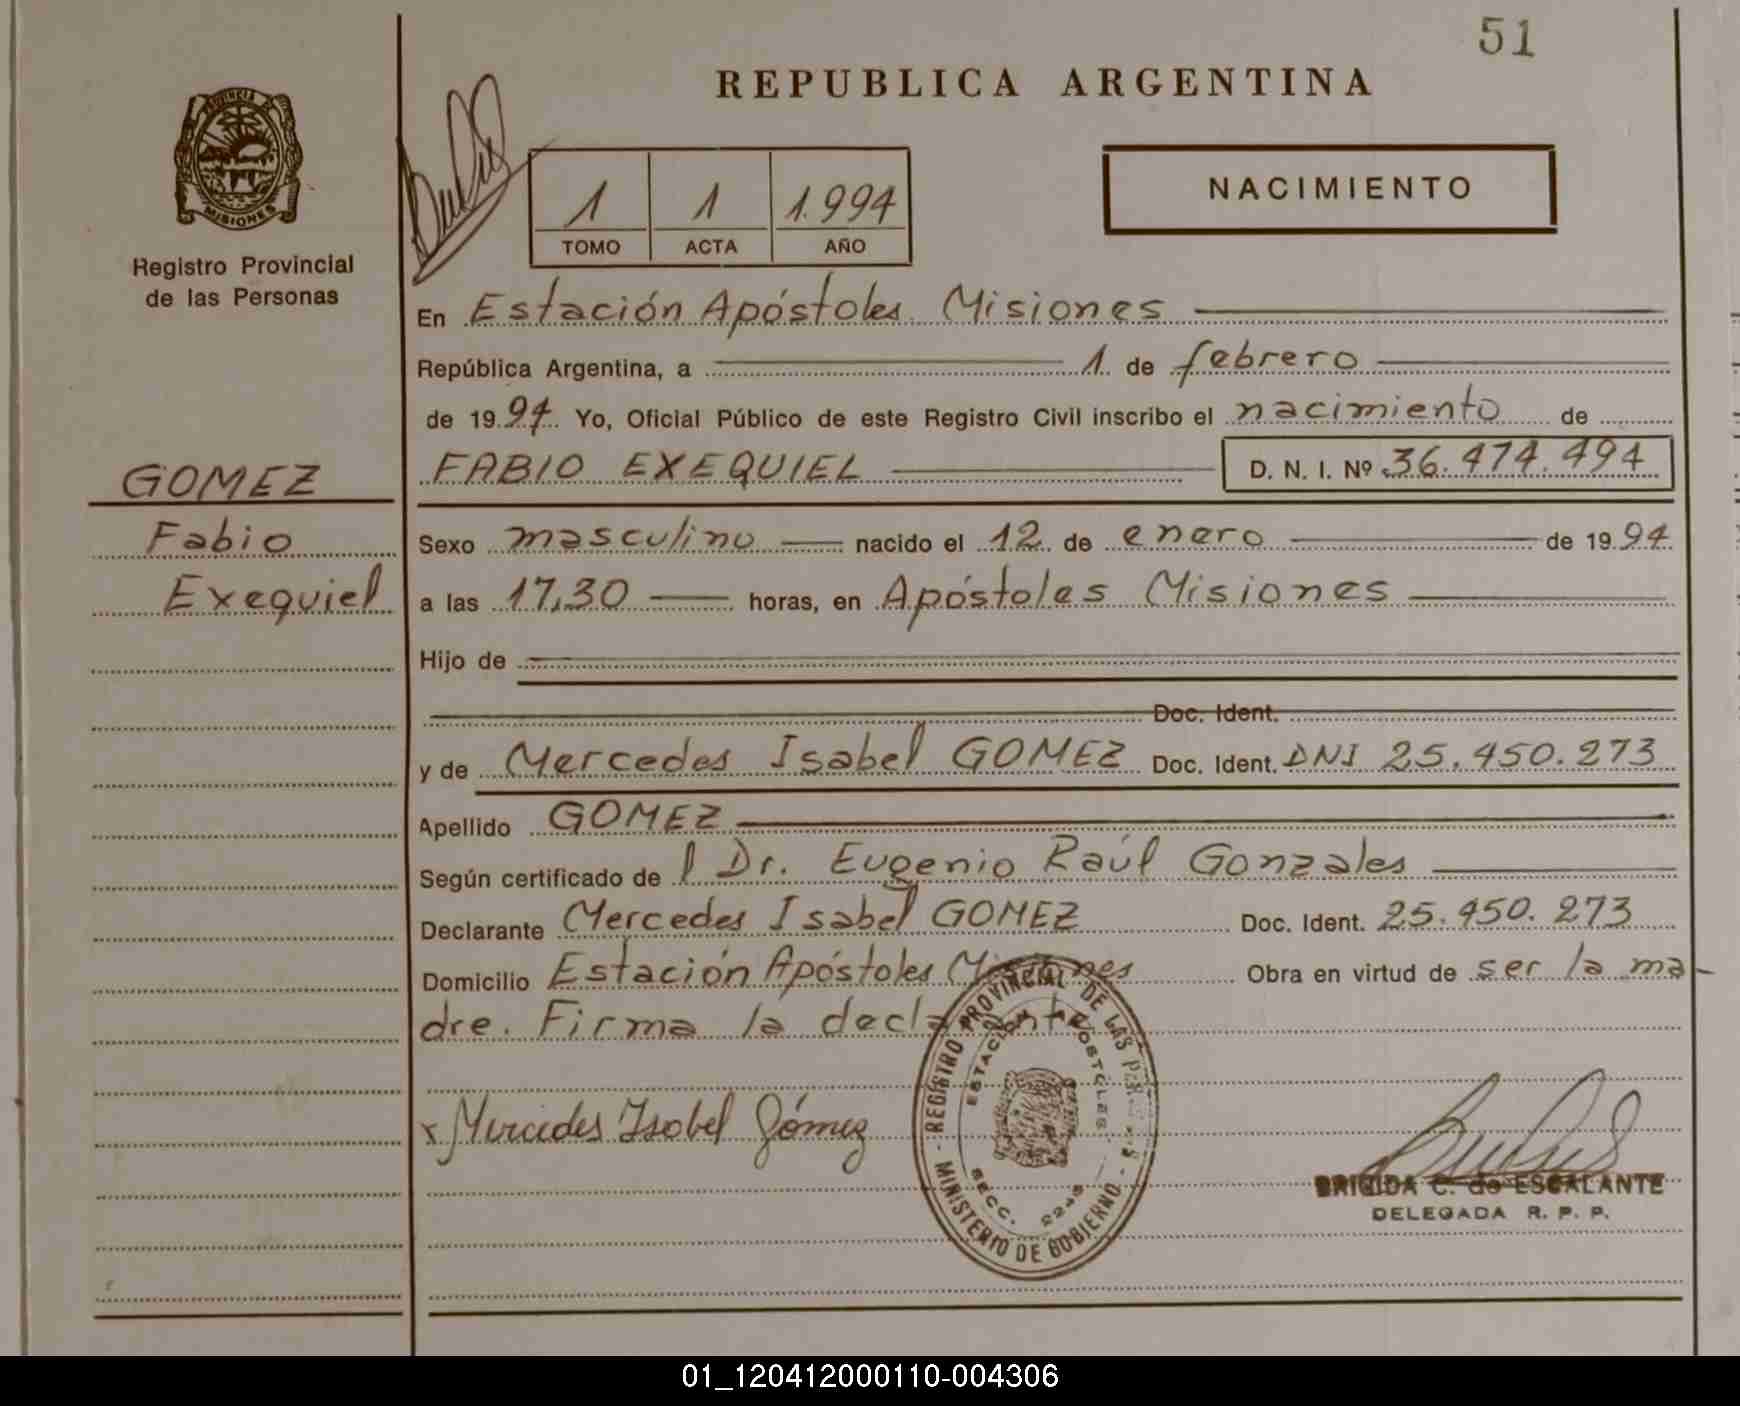 51
REPUBLICA ARGENTINA
PROVINCIA DE
MISIONES
Registro Provincial
de las Personas
1 1 1.994
TOMO ACTA AÑO
NACIMIENTO
En Estación Apóstoles Misiones
República Argentina, a 1 de febrero
de 1994 Yo, Oficial Público de este Registro Civil inscribo el nacimiento de
GOMEZ
Fabio
Exequiel
FABIO EXEQUIEL D. N. I. Nº 36.474.494
Sexo masculino nacido el 12 de enero de 1994
a las 17,30 horas, en Apóstoles Misiones
Hijo de
Doc. Ident.
y de Mercedes Isabel GOMEZ Doc. Ident. DNI 25.450.273
Apellido GOMEZ
Según certificado de l Dr. Eugenio Raúl Gonzales
Declarante Mercedes Isabel GOMEZ Doc. Ident. 25.450.273
Domicilio Estación Apóstoles Misiones Obra en virtud de ser la ma-
dre. Firma la declarante
x Mercedes Isabel Gómez
REGISTRO PROVINCIAL DE LAS PERSONAS
ESTACION APOSTOLES
SECC. 2243
- MINISTERIO DE GOBIERNO -
BRIGIDA C. de ESCALANTE
DELEGADA R. P. P.
01_120412000110-004306